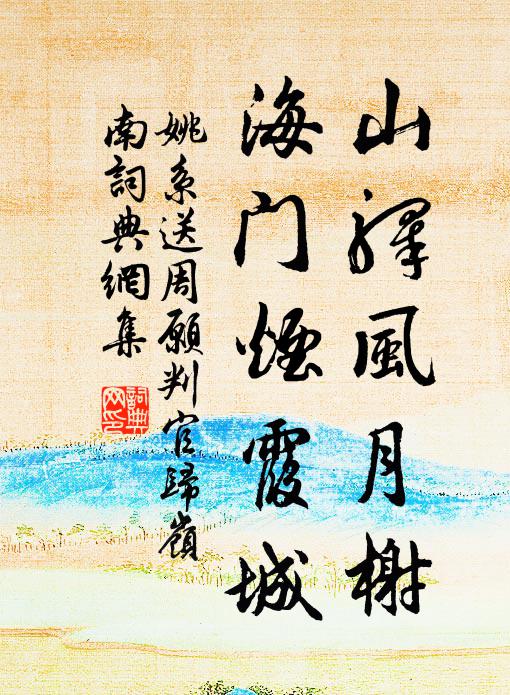 山驛風月榭
海門煙霞城
姚系送周願判官歸嶺
南詞典網集
詞典
网印